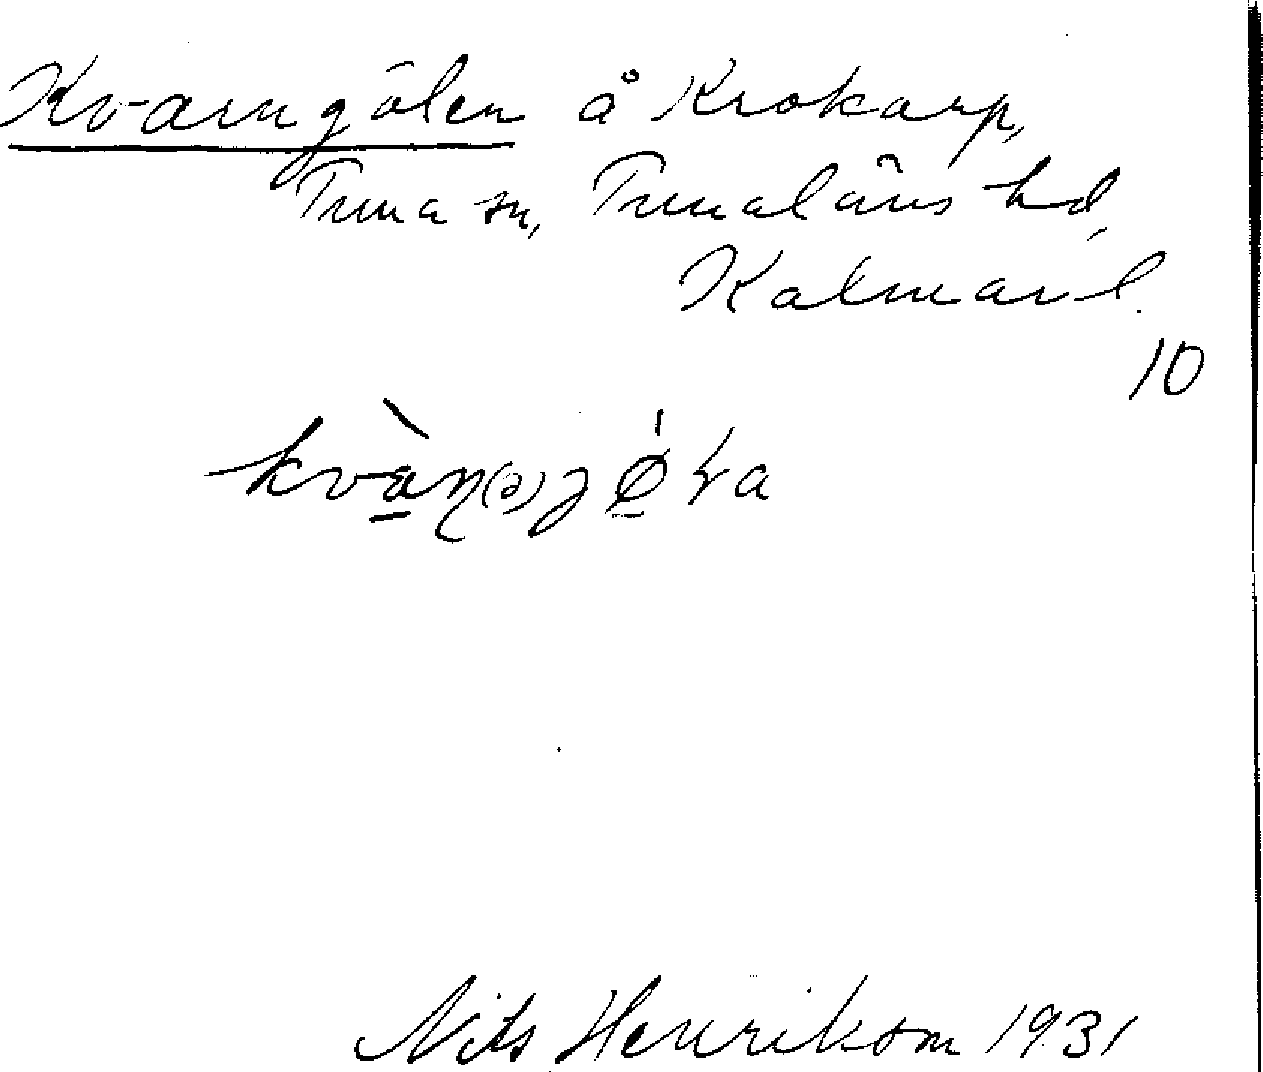 Kvarngölen å Krokarp,
Tuna sn, Tunaläns hd,
Kalmar l.
10
Nils Henrikson 1931